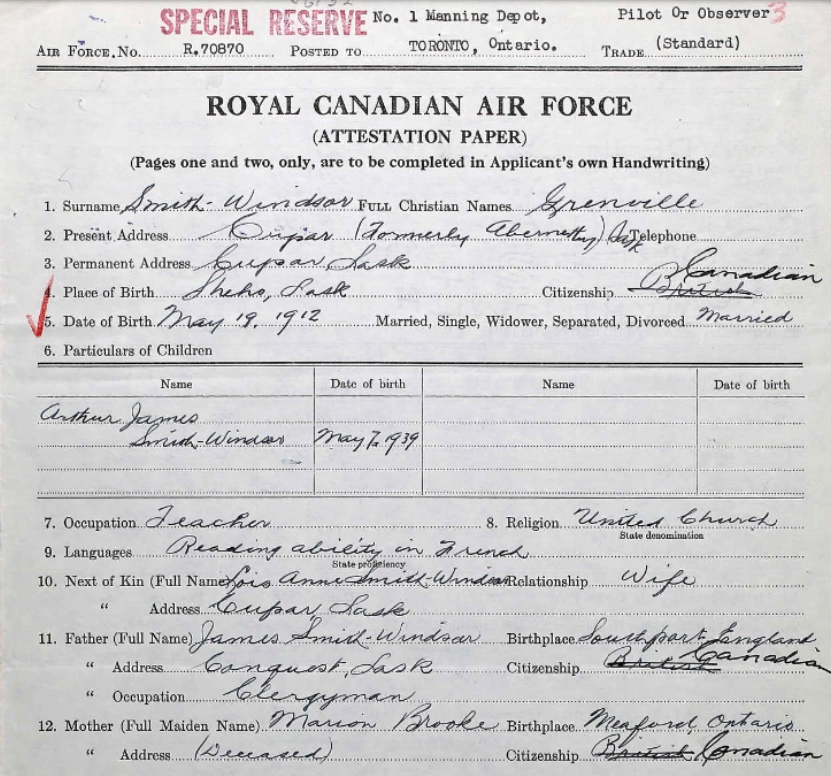 SPECIAL RESERVE No. 1 Manning Depot, Pilot Or Observer 3
AIR FORCE, NO. R.70870 POSTED TO TORONTO, Ontario. TRADE (Standard)
ROYAL CANADIAN AIR FORCE
(ATTESTATION PAPER)
(Pages one and two, only, are to be completed in Applicant's own Handwriting)
1. Surname Smith-Windsor FULL Christian Names Grenville
2. Present Address Cupar (Formerly Abernethy) Sask Telephone
3. Permanent Address Cupar Sask
4. Place of Birth Sheho, Sask Citizenship British Canadian
5. Date of Birth May 19, 1912 Married, Single, Widower, Separated, Divorced Married
6. Particulars of Children
Name Date of birth Name Date of birth
Arthur James
Smith-Windsor May 7, 1939
7. Occupation Teacher 8. Religion United Church
State denomination
9. Languages Reading ability in French
State proficiency
10. Next of Kin (Full Name) Lois Anne Smith-Windsor Relationship Wife
" Address Cupar Sask
11. Father (Full Name) James Smith-Windsor Birthplace Southport, England
" Address Conquest, Sask Citizenship British Canadian
" Occupation Clergyman
12. Mother (Full Maiden Name) Marion Brooke Birthplace Meaford, Ontario
" Address (Deceased) Citizenship British Canadian